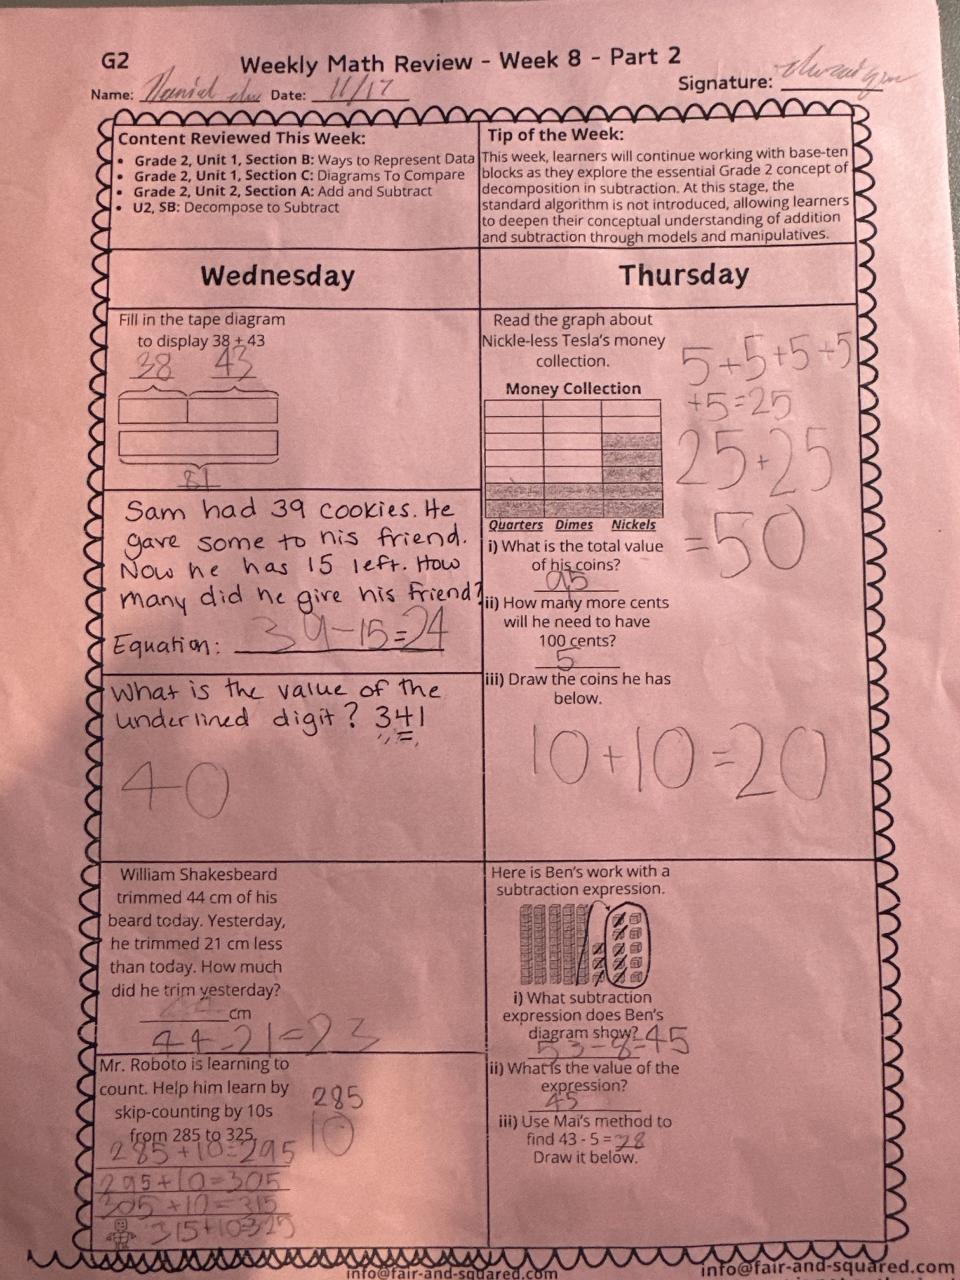 G2
Weekly Math Review - Week 8 - Part 2
Name: Daniel Date: 11/17
Signature:
Content Reviewed This Week:
• Grade 2, Unit 1, Section B: Ways to Represent Data
• Grade 2, Unit 1, Section C: Diagrams To Compare
• Grade 2, Unit 2, Section A: Add and Subtract
• U2, SB: Decompose to Subtract
Tip of the Week:
This week, learners will continue working with base-ten
blocks as they explore the essential Grade 2 concept of
decomposition in subtraction. At this stage, the
standard algorithm is not introduced, allowing learners
to deepen their conceptual understanding of addition
and subtraction through models and manipulatives.
Wednesday
Fill in the tape diagram
to display 38 + 43
38 43
81
Sam had 39 cookies. He
gave some to his friend.
Now he has 15 left. How
many did he give his friend?
Equation: 39-15=24
What is the value of the
underlined digit? 341
40
William Shakesbeard
trimmed 44 cm of his
beard today. Yesterday,
he trimmed 21 cm less
than today. How much
did he trim yesterday?
cm
44-21=23
Mr. Roboto is learning to
count. Help him learn by
skip-counting by 10s
from 285 to 325.
285
10
285+10=295
295+10=305
305+10=315
315+10=325
Thursday
Read the graph about
Nickle-less Tesla's money
collection.
Money Collection
Quarters Dimes Nickels
5+5+5+5
+5=25
25+25
=50
i) What is the total value
of his coins?
95
ii) How many more cents
will he need to have
100 cents?
5
iii) Draw the coins he has
below.
10+10=20
Here is Ben's work with a
subtraction expression.
i) What subtraction
expression does Ben's
diagram show?
53-8=45
ii) What is the value of the
expression?
45
iii) Use Mai's method to
find 43 - 5 = 28
Draw it below.
info@fair-and-squared.com
info@fair-and-squared.com